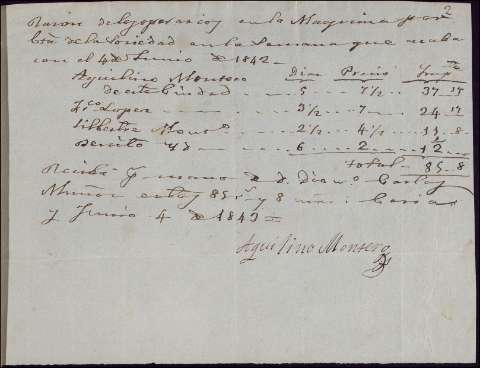 2
Razon de los operarios en la Maquina por
de la Sociedad en la Semana que acaba
con el 4 de Junio de 1842 =
Aquilino Montero Dias Precio Imp.te
de esta Ciudad 5 7½ 37 17
F.co Lopez 3½ 7 24 17
Silbestre Mont.o 2½ 4½ 11 8
Benito Yd 6 2 12
Total 85 8
Recibi de mano de d. Carlos
Muñoz estos 85 r.s y 8
y Junio 4 de 1842 =
Aquilino Montero